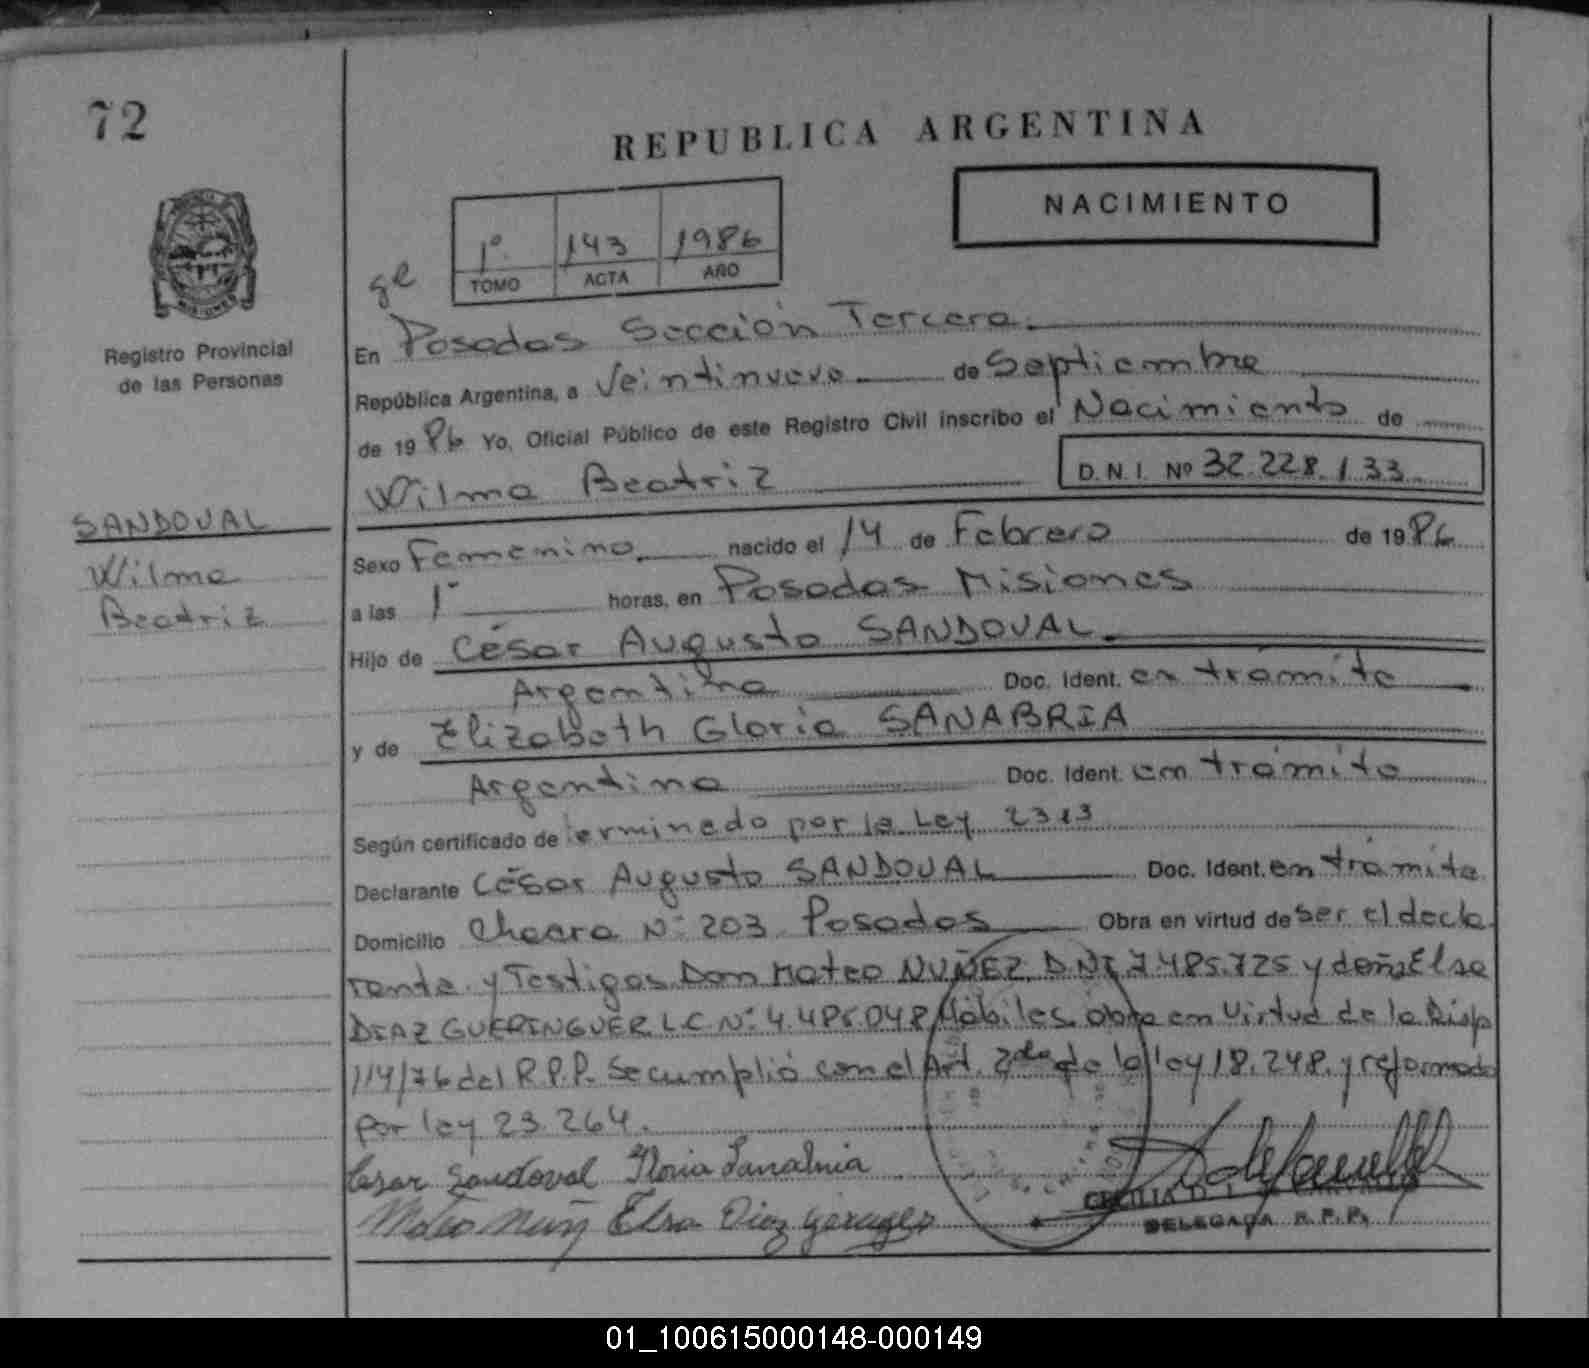 72
REPUBLICA ARGENTINA
NACIMIENTO
1º. 143 1986
TOMO ACTA AÑO
MISIONES
Registro Provincial
de las Personas
En Posadas Sección Tercera.
República Argentina, a Veintinueve de Septiembre
de 1986 Yo, Oficial Público de este Registro Civil inscribo el Nacimiento de
Wilma Beatriz D.N.I. Nº 32.228.133
SANDOVAL
Wilma
Beatriz
Sexo Femenino nacido el 14 de Febrero de 1986
a las 1 horas, en Posadas Misiones
Hijo de César Augusto SANDOVAL
Argentina Doc. Ident. en trámite
y de Elizabeth Gloria SANABRIA
Argentina Doc. Ident. en trámite
Según certificado determinado por la Ley 2393
Declarante César Augusto SANDOVAL Doc. Ident. en trámite
Domicilio Chacra Nº 203 Posadas Obra en virtud de ser el decla
rante y Testigos Don Mateo NUÑEZ D.N.I 7.485.725 y doña Elsa
DIAZ L.C. Nº 4.486.048 Hábiles. obra en virtud de la Disp
114/76 del R.P.P. Se cumplió con el Art. 2do de la ley 18.248. y reformado
por ley 23.264.
Cesar Sandoval Gloria Sanabria
Mateo Elsa Diaz
CECILIA D.
DELEGADA R.P.P.
01_100615000148-000149